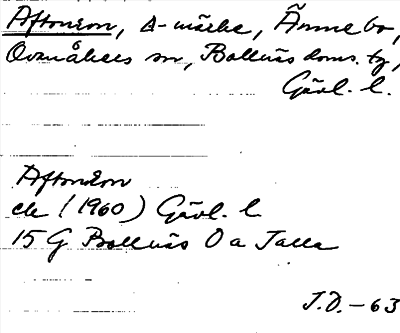 Aftonron, Δ-märke, Ännebo,
Ovanåkers sn, Bollnäs doms. tg,
Gävl. l.
Aftonron
ek (1960) Gävl. l
15 G Bollnäs O a Jalla
J.D. - 63